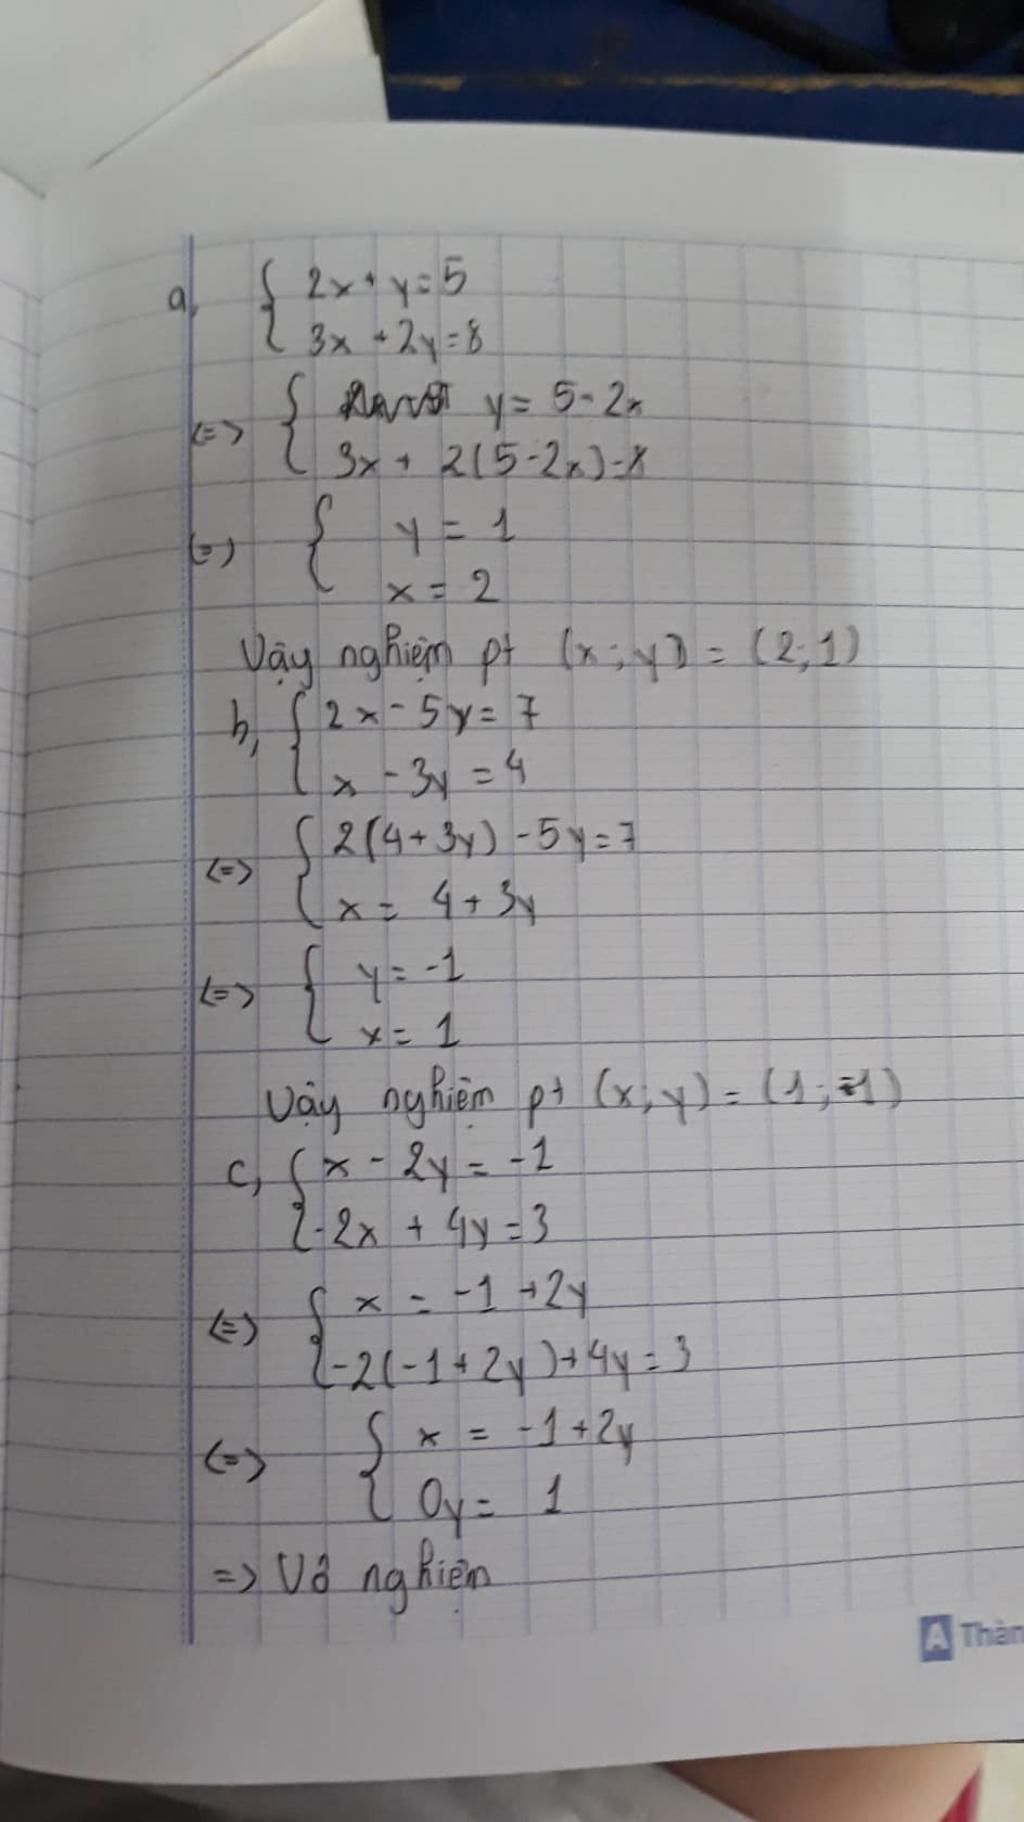 a, { 2x + y = 5
3x + 2y = 8
<=> { y = 5 - 2x
3x + 2(5 - 2x) = 8
<=> { y = 1
x = 2
Vậy nghiệm pt (x; y) = (2; 1)
b, { 2x - 5y = 7
x - 3y = 4
<=> { 2(4 + 3y) - 5y = 7
x = 4 + 3y
<=> { y = -1
x = 1
Vậy nghiệm pt (x; y) = (1; -1)
c, { x - 2y = -1
-2x + 4y = 3
<=> { x = -1 + 2y
-2(-1 + 2y) + 4y = 3
<=> { x = -1 + 2y
0y = 1
=> Vô nghiệm
A Thàn